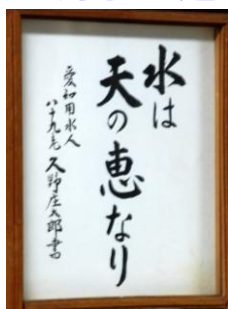 水は
天の恵なり
愛知用水人
八十九才 久野庄太郎書